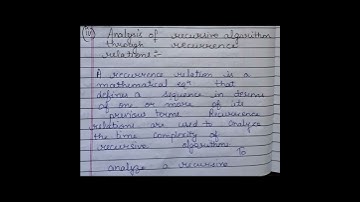 (iii) Analysis of recursive algorithm
through recurrence
relations:-
A recurrence relation is a
mathematical eqn that
defines a sequence in terms
of one or more of its
previous terms Recurrence
relations are used to analyze
the time complexity of
recursive algorithm
To
analyze a recursive